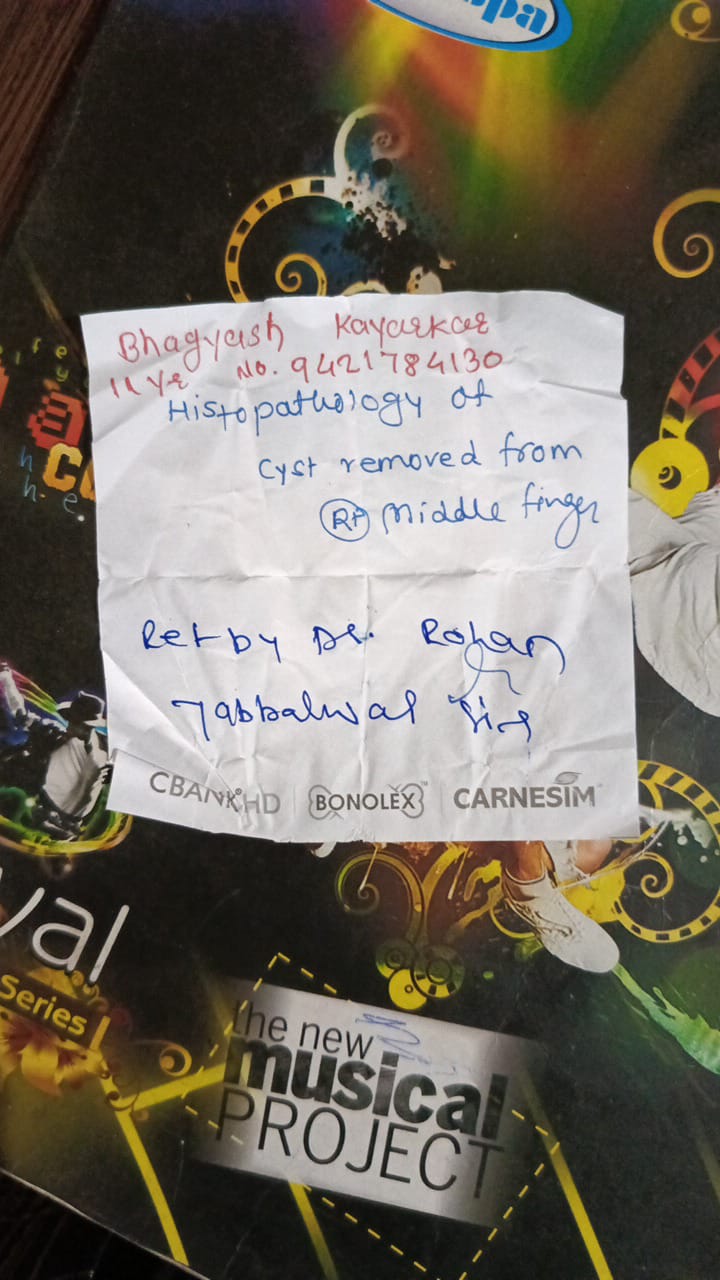 pa
Bhagyash Kayarkar
11 Yr No. 9421784130
Histopathology of
Cyst removed from
Rt Middle finger
Ref by Dr. Rohan
CBANK HD BONOLEX™ CARNESIM
val
Series
the new
musical
PROJECT